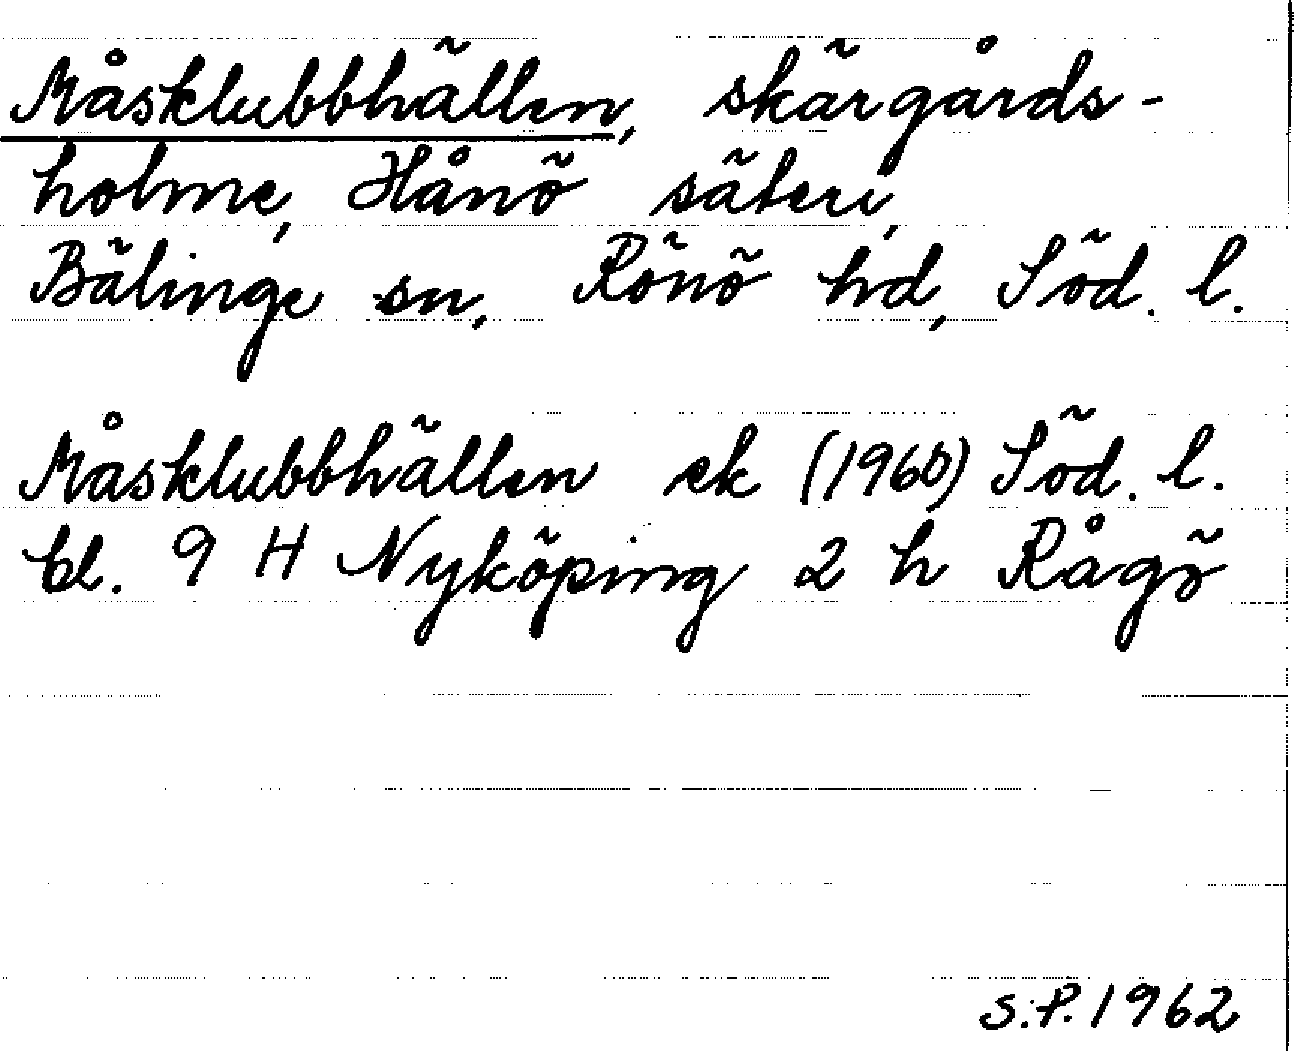 Måsklubbhällen, skärgårds-
holme, Hånö säteri,
Bälinge sn, Rönö hd, Söd. l.
Måsklubbhällen ek (1960) Söd. l.
bl. 9 H Nyköping 2 h Rågö
S.P. 1962